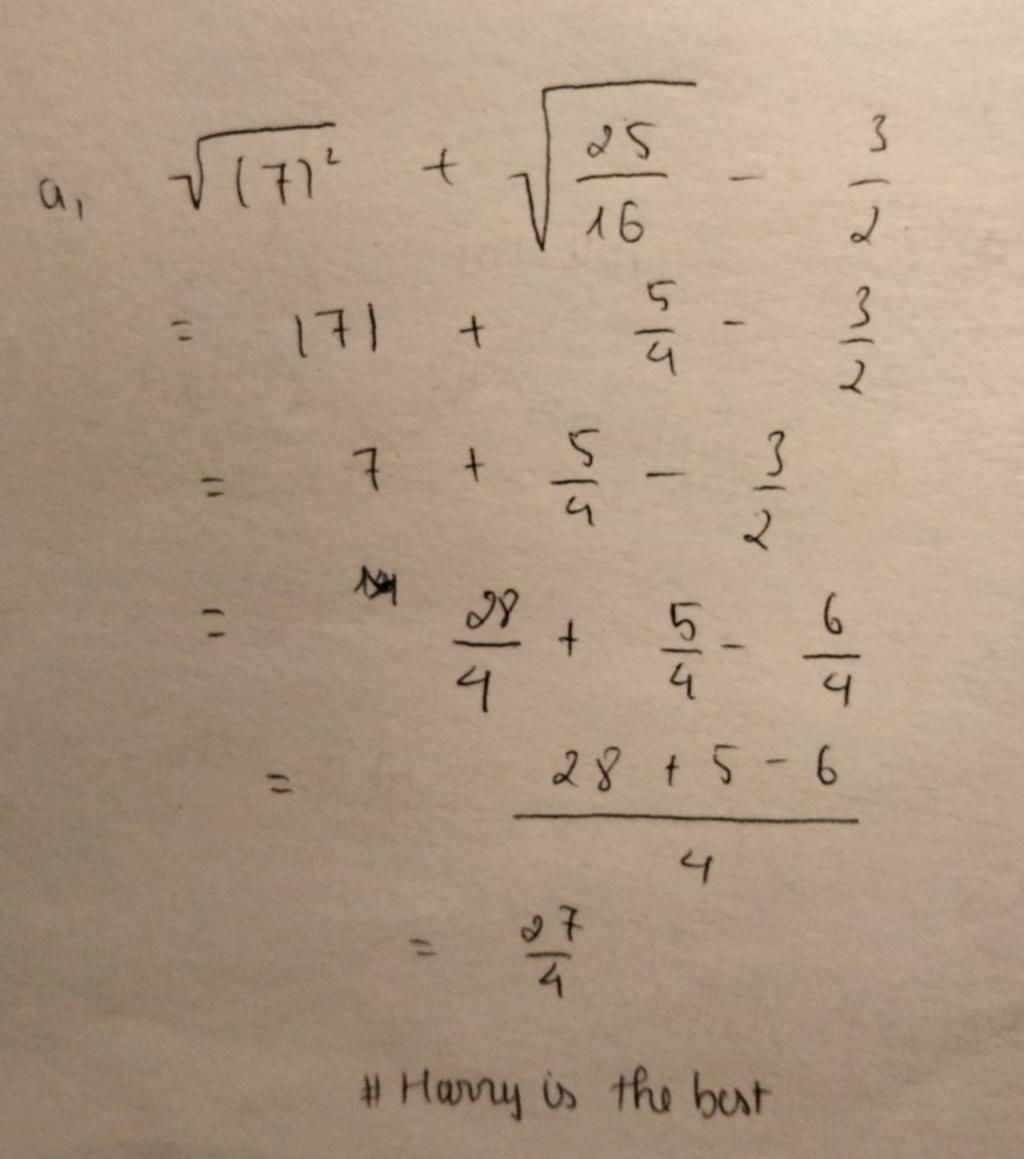 a, √(7)² + √25/16 - 3/2
= |7| + 5/4 - 3/2
= 7 + 5/4 - 3/2
= 28/4 + 5/4 - 6/4
= 28 + 5 - 6 / 4
= 27/4
# Harry is the best